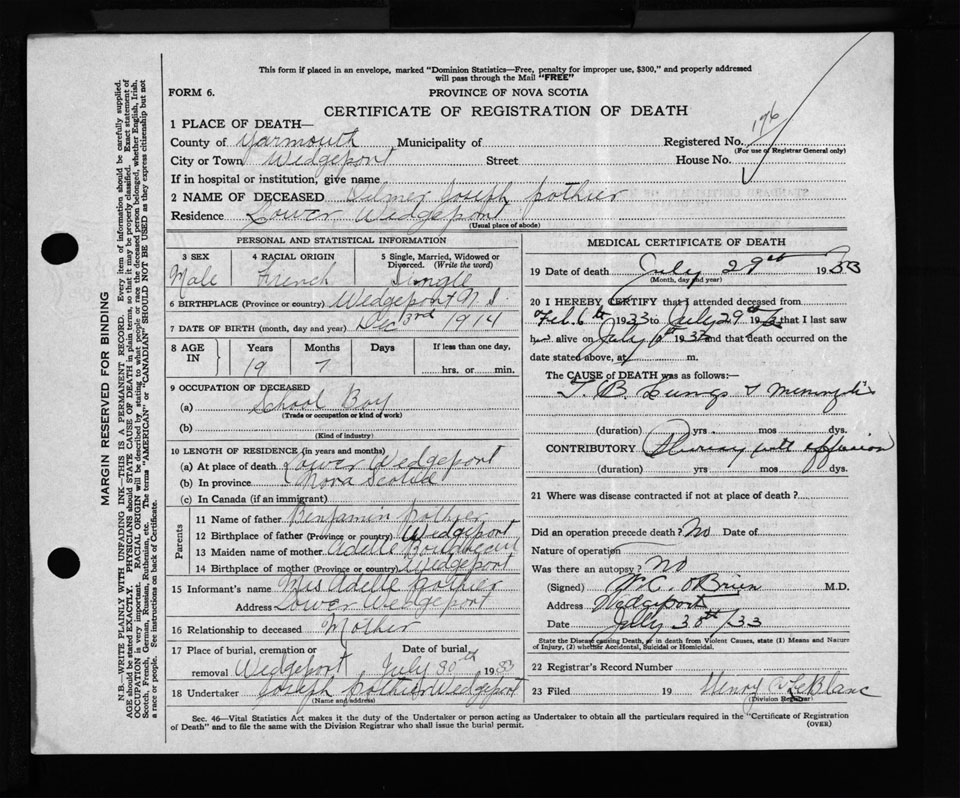 This form if placed in an envelope, marked "Dominion Statistics—Free, penalty for improper use, $300," and properly addressed
will pass through the Mail "FREE"
FORM 6.
PROVINCE OF NOVA SCOTIA
CERTIFICATE OF REGISTRATION OF DEATH
196
1 PLACE OF DEATH—
County of Yarmouth Municipality of Registered No.
(For use of Registrar General only)
City or Town Wedgeport Street House No.
If in hospital or institution, give name
2 NAME OF DECEASED Delmer Joseph Pothier
Residence Lower Wedgeport
(Usual place of abode)
PERSONAL AND STATISTICAL INFORMATION
3 SEX 4 RACIAL ORIGIN 5 Single, Married, Widowed or
Divorced. (Write the word)
Male French Single
6 BIRTHPLACE (Province or country) Wedgeport N.S.
7 DATE OF BIRTH (month, day and year) Dec 3rd 1914
8 AGE IN Years Months Days If less than one day,
19 7 hrs. or min.
9 OCCUPATION OF DECEASED
(a) School Boy
(Trade or occupation or kind of work)
(b)
(Kind of industry)
10 LENGTH OF RESIDENCE (in years and months)
(a) At place of death Lower Wedgeport
(b) In province Nova Scotia
(c) In Canada (if an immigrant)
Parents
11 Name of father Benjamin Pothier
12 Birthplace of father (Province or country) Wedgeport
13 Maiden name of mother Adelle Boudreau
14 Birthplace of mother (Province or country) Wedgeport
15 Informant's name Mrs Adelle Pothier
Address Lower Wedgeport
16 Relationship to deceased Mother
17 Place of burial, cremation or Date of burial,
removal Wedgeport July 30th 1933
18 Undertaker Joseph Pothier Wedgeport
(Name and address)
MEDICAL CERTIFICATE OF DEATH
19 Date of death July 29th 1933
(Month, day and year)
20 I HEREBY CERTIFY that I attended deceased from
Feb. 6th 1933 to July 29th 193 that I last saw
h alive on July 193 and that death occurred on the
date stated above, at m.
The CAUSE of DEATH was as follows:—
T. B. Lungs & Meningitis
(duration) yrs. mos. dys.
CONTRIBUTORY Pleurisy with effusion
(duration) yrs. mos. dys.
21 Where was disease contracted if not at place of death?
Did an operation precede death? No Date of
Nature of operation
Was there an autopsy? No
(Signed) W.C. O'Brien M.D.
Address Wedgeport
Date July 30th/33
State the Disease causing Death, or in death from Violent Causes, state (1) Means and Nature
of Injury, (2) whether Accidental, Suicidal or Homicidal.
22 Registrar's Record Number
23 Filed 19 Henry A LeBlanc
(Division Registrar)
Sec. 46—Vital Statistics Act makes it the duty of the Undertaker or person acting as Undertaker to obtain all the particulars required in the "Certificate of Registration
of Death" and to file the same with the Division Registrar who shall issue the burial permit.
(OVER)
MARGIN RESERVED FOR BINDING
N.B.—WRITE PLAINLY WITH UNFADING INK—THIS IS A PERMANENT RECORD. Every item of information should be carefully supplied.
AGE should be stated EXACTLY. PHYSICIANS should STATE CAUSE OF DEATH in plain terms, so that it may be properly classified. Exact statement of
OCCUPATION is very important. RACIAL ORIGIN will be described by stating to what people or race the deceased person belonged, whether English, Irish,
Scotch, French, German, Russian, Ruthenian, etc. The terms "AMERICAN" or "CANADIAN" SHOULD NOT BE USED as they express citizenship but not
a race or people. See instructions on back of Certificate.